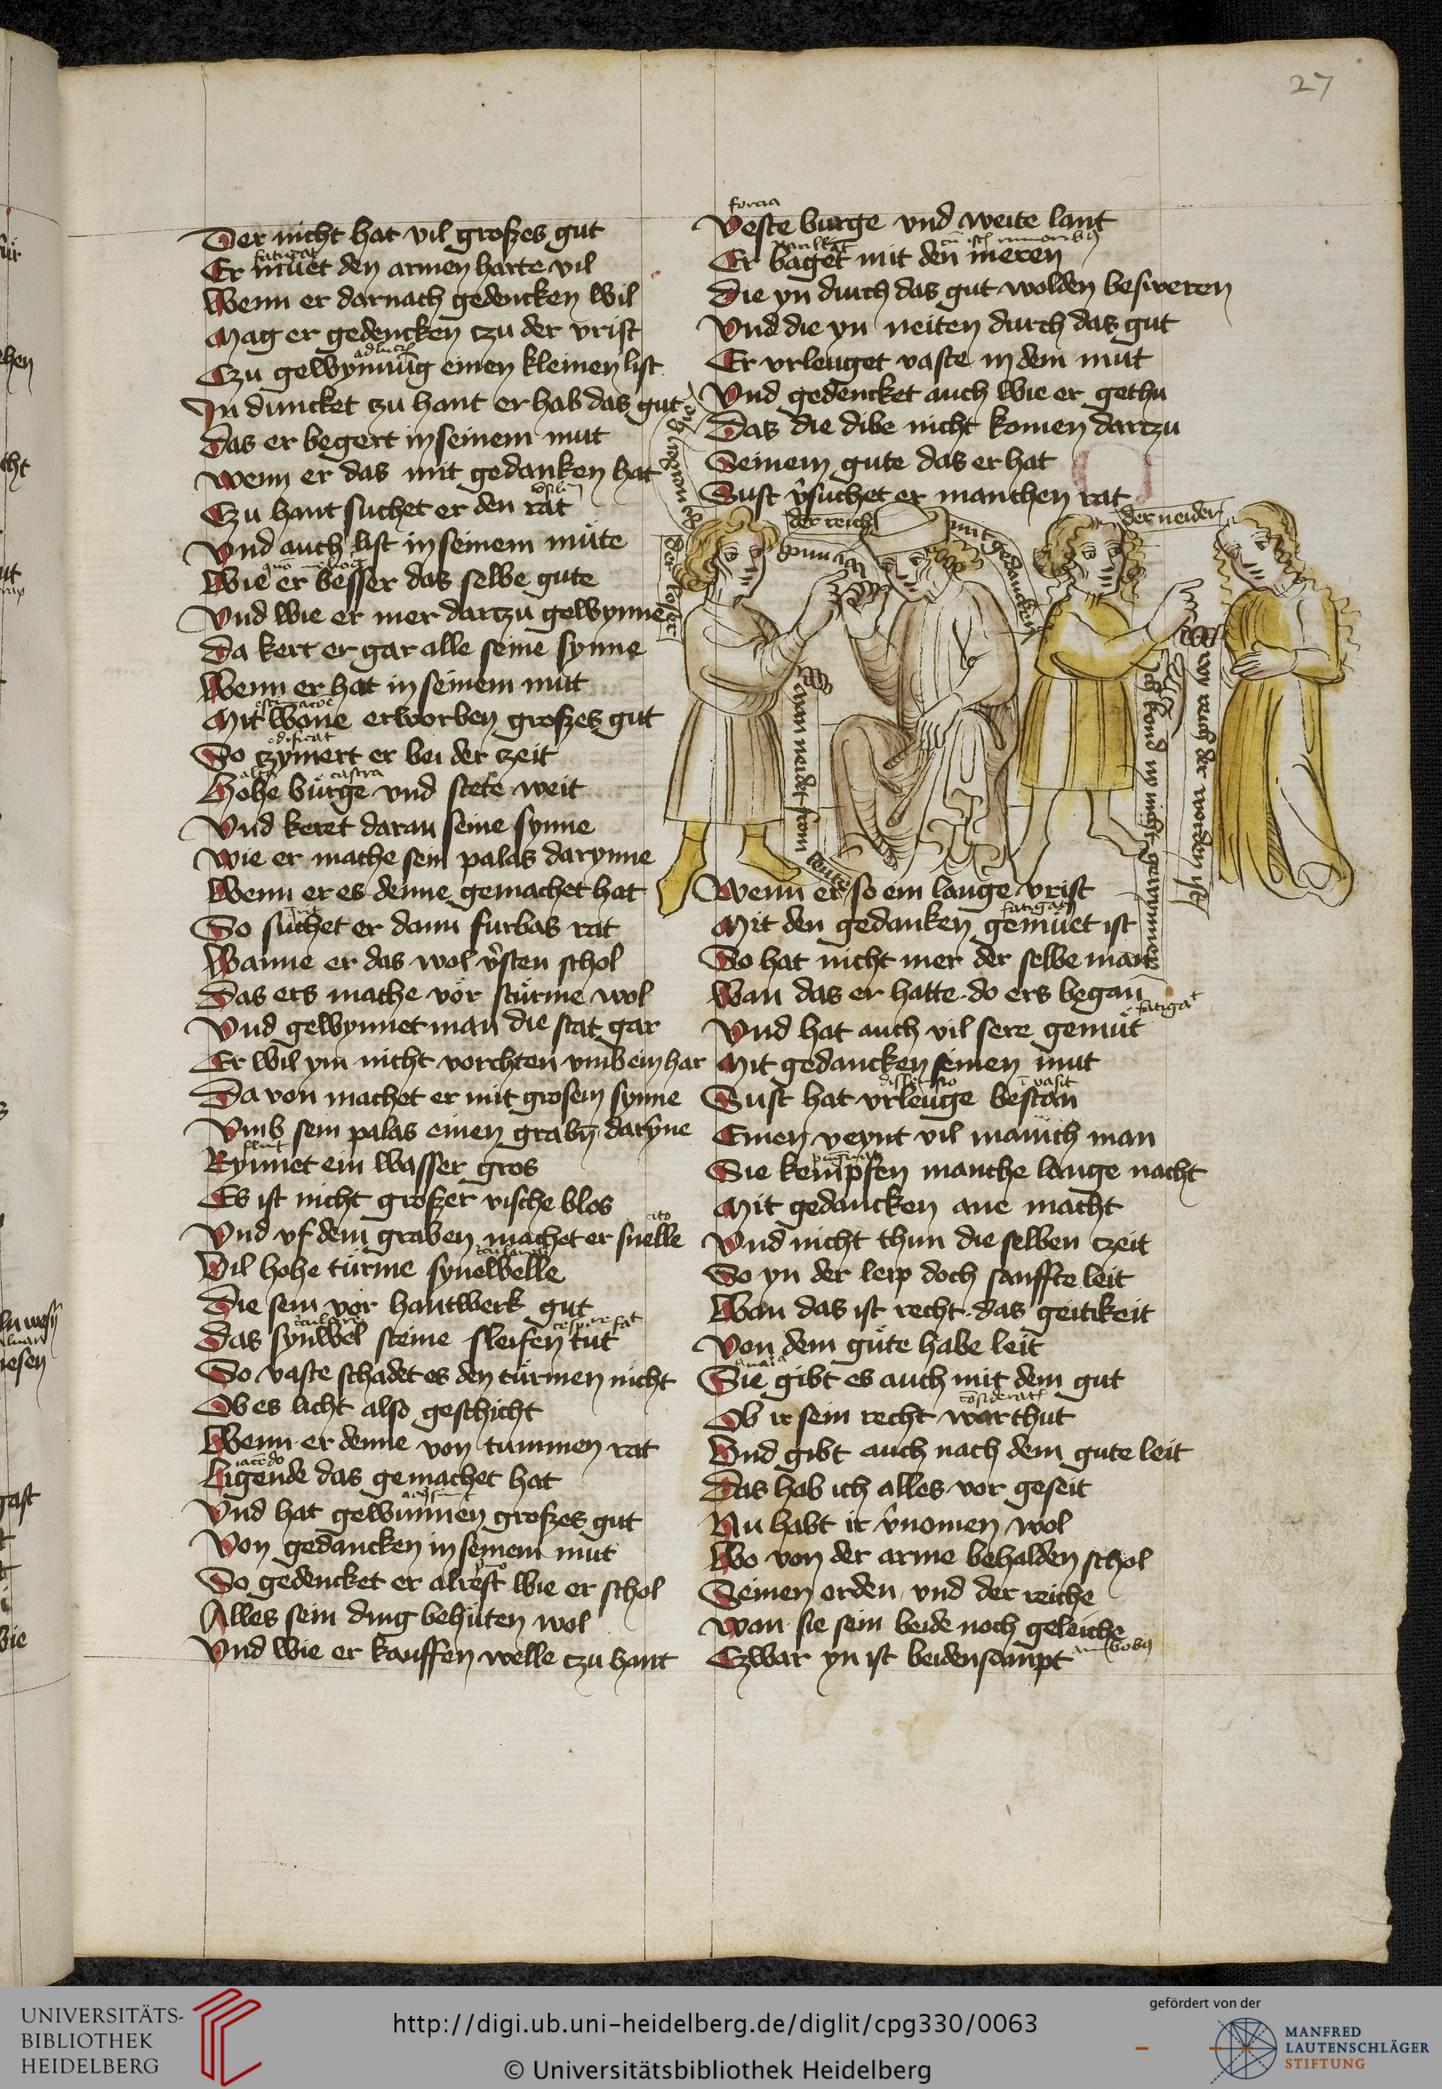 27
Der nicht hat vil groſzes gut
fatigat
Er muet den armen harte vil
Wenn er darnach gedencken wil
Mag er gedencken czu der vrist
Czu gewynnūg einen kleinen list
In duncket zu hant er hab das gut
Das er begert in seinem mut
wenn er das mit gedanken hat
Czu hant suchet er den rat
Vnd auch list in seinem müte
Wie er besser das selbe gute
Vnd wie er mer dartzu gewynne
Da kert er gar alle seine synne
Wenn er hat in seinem mut
Mit wone erworben groſzes gut
edificat
So czymert er bei der czeit
alta castra
Hohe bürge vnd stete weit
Vnd keret daran seine synne
wie er mache sein palas darynne
Wenn er es denne gemachet hat
So suchet er dann furbas rat
Wanne er das wol v̉sten schol
Das ers mache vor sturme wol
Vnd gewynnet man die stat gar
Er wil ym nicht vorchten vmb ein har
Da von machet er mit grosem synne
Vmb sein palas einen grabn̄ darȳne
Rynnet ein wasser gros
Es ist nicht groſzer vische blos
cito
Vnd vf dem graben machet er snelle
Vil hohe türme synewelle
Die sein vor hantwerk gut
Das synwel steine sleifen tut
So vaste schadet es den türmen nicht
Ob es licht also geschicht
Wenn er denne von tummen rat
iacēdo
Ligende das gemachet hat
Vnd hat gewunnen groſzes gut
Von gedancken in seinem mut
So gedencket er alrest wie er schol
Alles sein ding behüten wol
Vnd wie er kauffen welle czu hant
forcia
Veste burge vnd weite lant
Er baget mit den meren
Die yn durch das gut wolden besweren
Vnd die yn neiten durch das gut
Er vrleuget vaste in dem mut
Vnd gedencket auch wie er gethu
Das die dibe nicht komen dartzu
Seinem gute das er hat
Sust v̉suchet er manchen rat
der reich
der neider
mit gedancken
man neidet from leute
Wenn er so ein lange vrist
fatigat9
Mit den gedanken gemüet ist
So hat nicht mer der selbe man
Wan das er hatte do ers began
fatigat
Vnd hat auch vil sere gemüt
Mit gedancken seinen mut
Sust hat vrleuge bestan
Einen veynt vil manich man
Sie kempfen manche lange nacht
Mit gedancken ane macht
Vnd nicht thun die selben czeit
So yn der leip doch sanffte leit
Wan das ist recht das geitikeit
Von dem güte habe leit
Sie gibt es auch mit dem gut
Ob ir sein recht war thut
Vnd gibt auch nach dem gute leit
Das hab ich alles vor geseit
Nu habt ir v̉nomen wol
Wo von der arme behalden schol
Seinen orden vnd der reiche
wan sie sein beide noch geleiche
Czwar yn ist beidensampt
UNIVERSITÄTS-
BIBLIOTHEK
HEIDELBERG
http://digi.ub.uni-heidelberg.de/diglit/cpg330/0063
© Universitätsbibliothek Heidelberg
gefördert von der
MANFRED
LAUTENSCHLÄGER
STIFTUNG